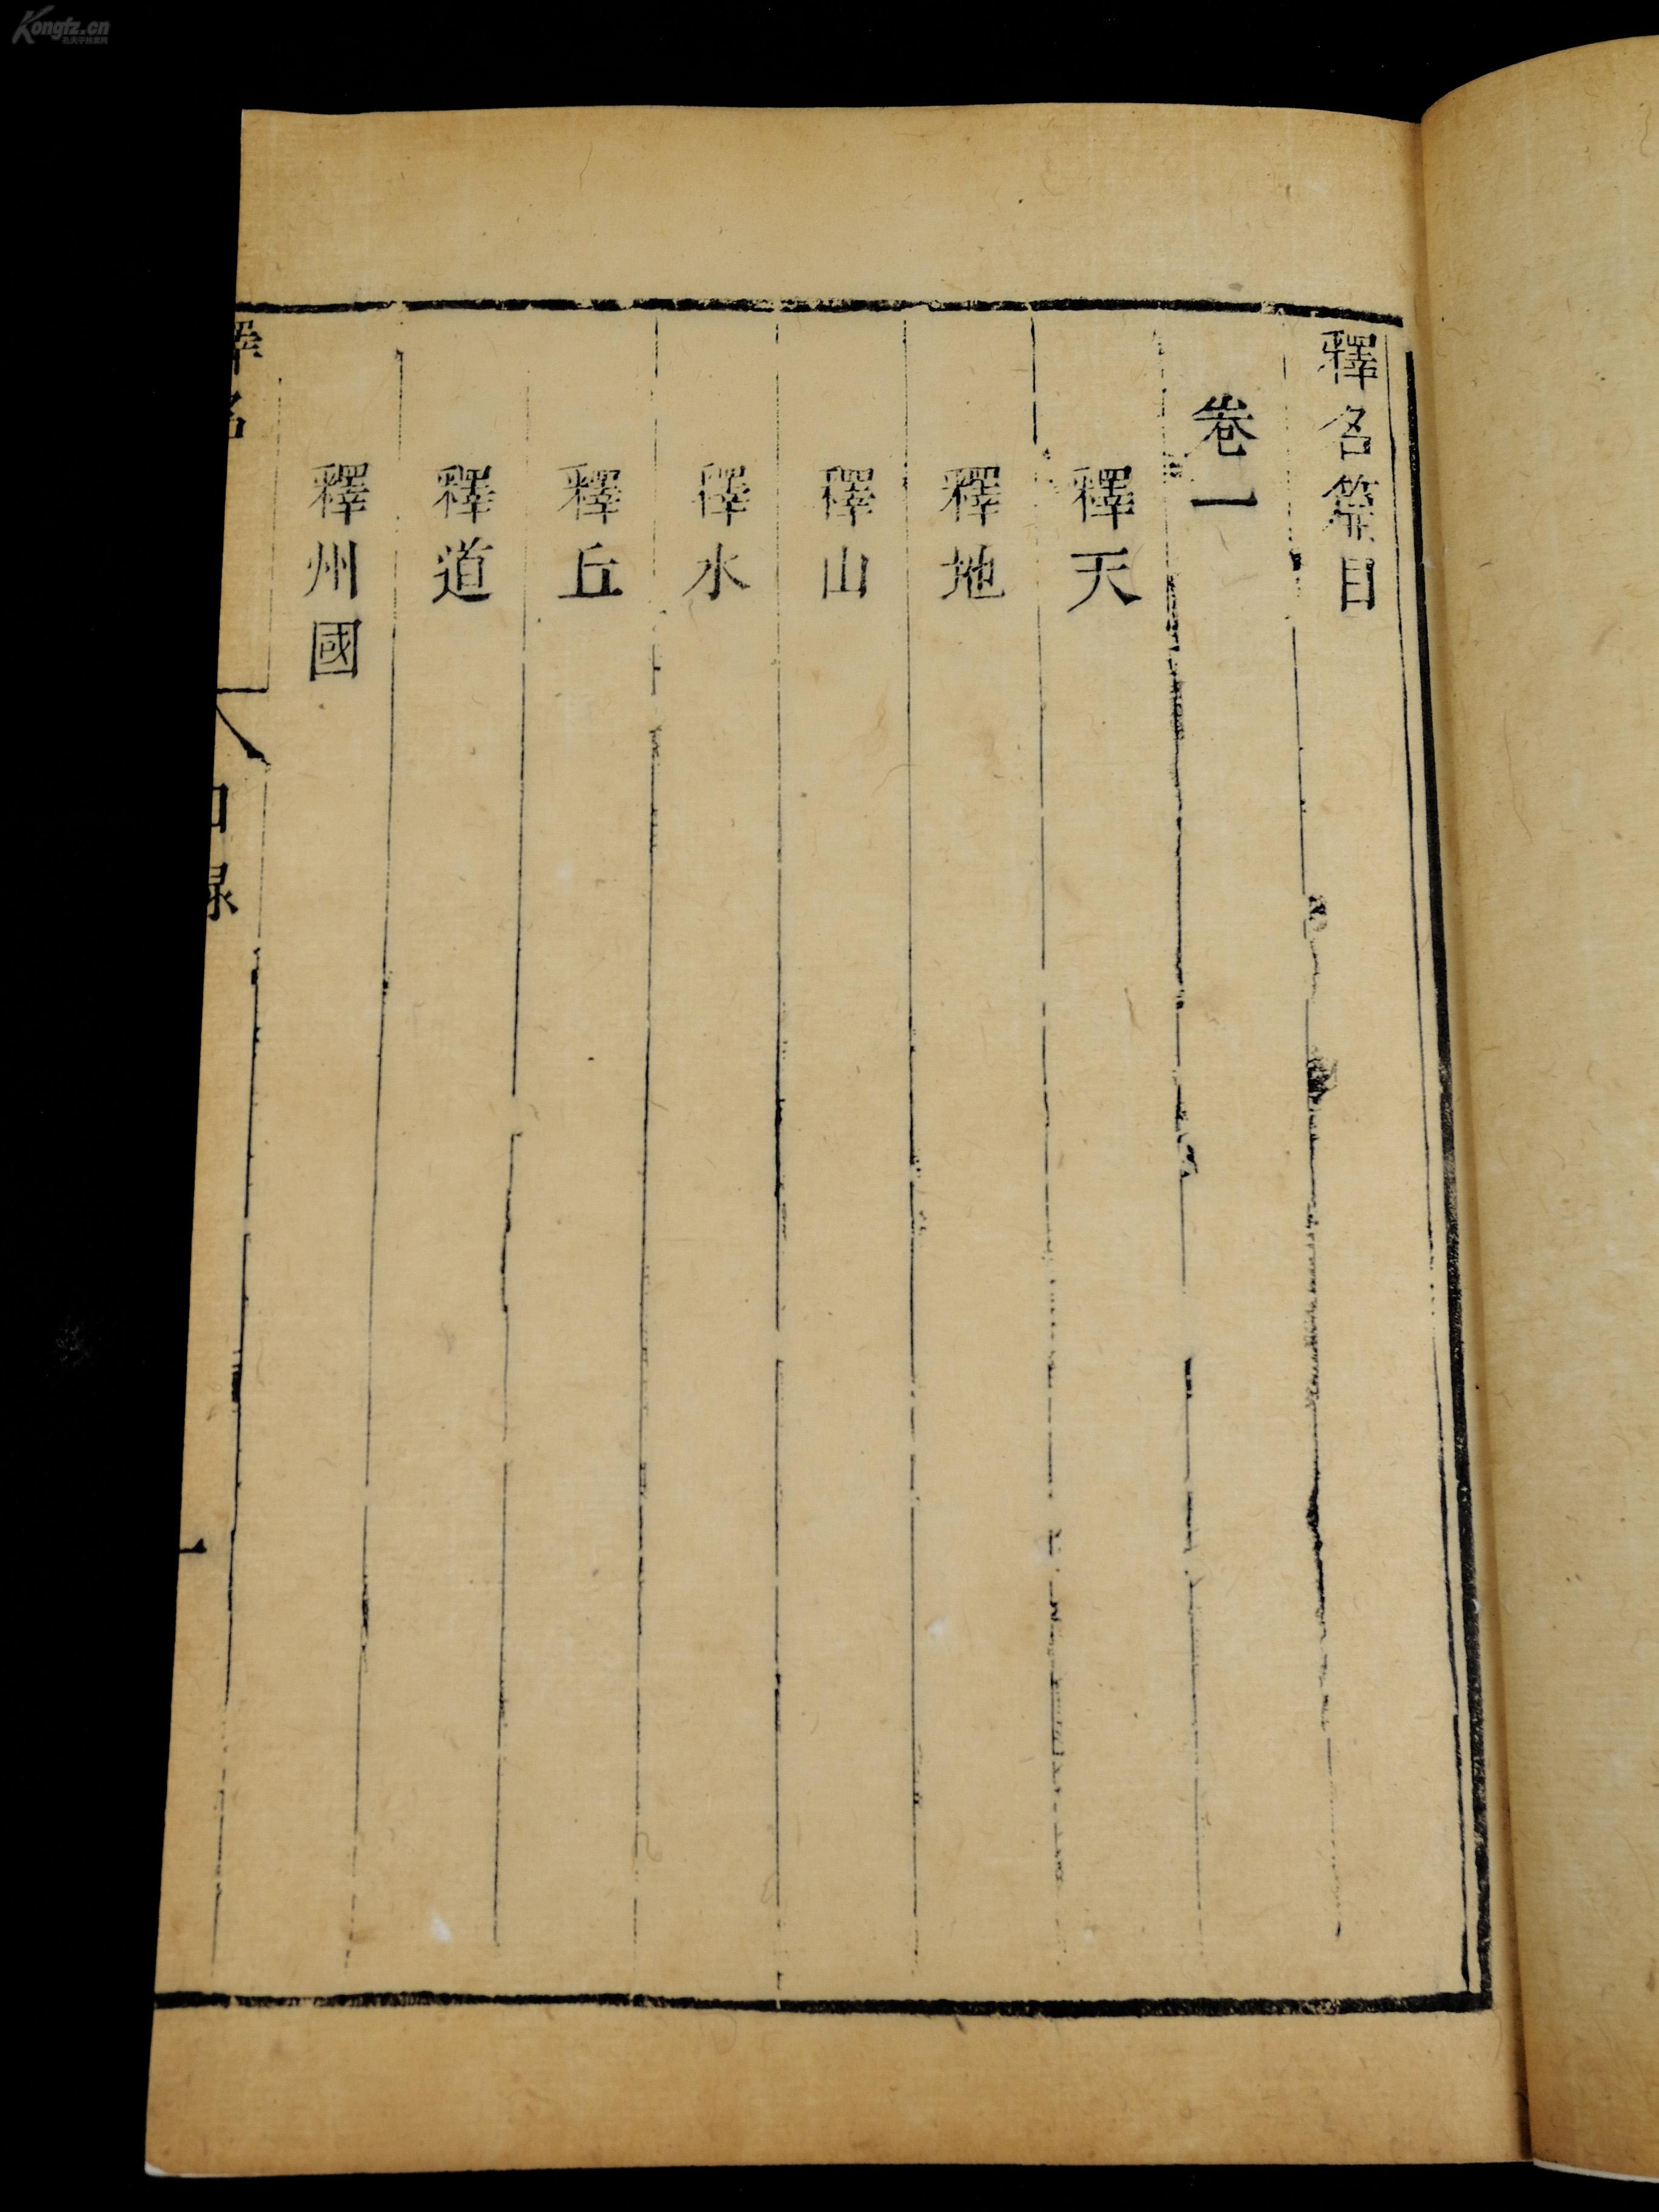 釋名篇目
卷一
釋天
釋地
釋山
釋水
釋丘
釋道
釋州國
釋名
目錄
一
Kongfz.cn